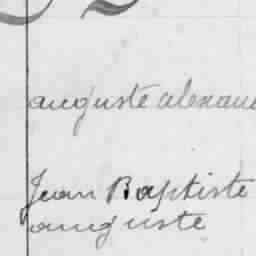 auguste alexan
Jean Baptiste
auguste